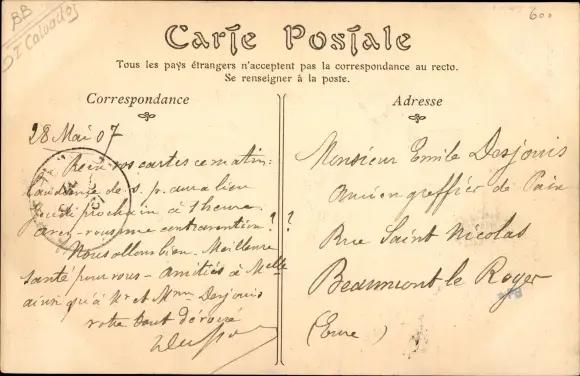 BB
DI Calvados
600
Carte Postale
Tous les pays étrangers n'acceptent pas la correspondance au recto.
Se renseigner à la poste.
Correspondance
Adresse
28 Mai 07
Reçu vos cartes ce matin:
L'audience de s. p. aura lieu
jeudi prochain à 1 heure.
avez-vous une contravention??
Nous allons bien. Meilleure
santé pour vous - amitiés à Melle
ainsi qu'à Mr et Mme Desjouis
votre tout dévoué
Monsieur Emile Desjouis
Ancien greffier de Paix
Rue Saint Nicolas
Beaumont le Roger
(Eure)